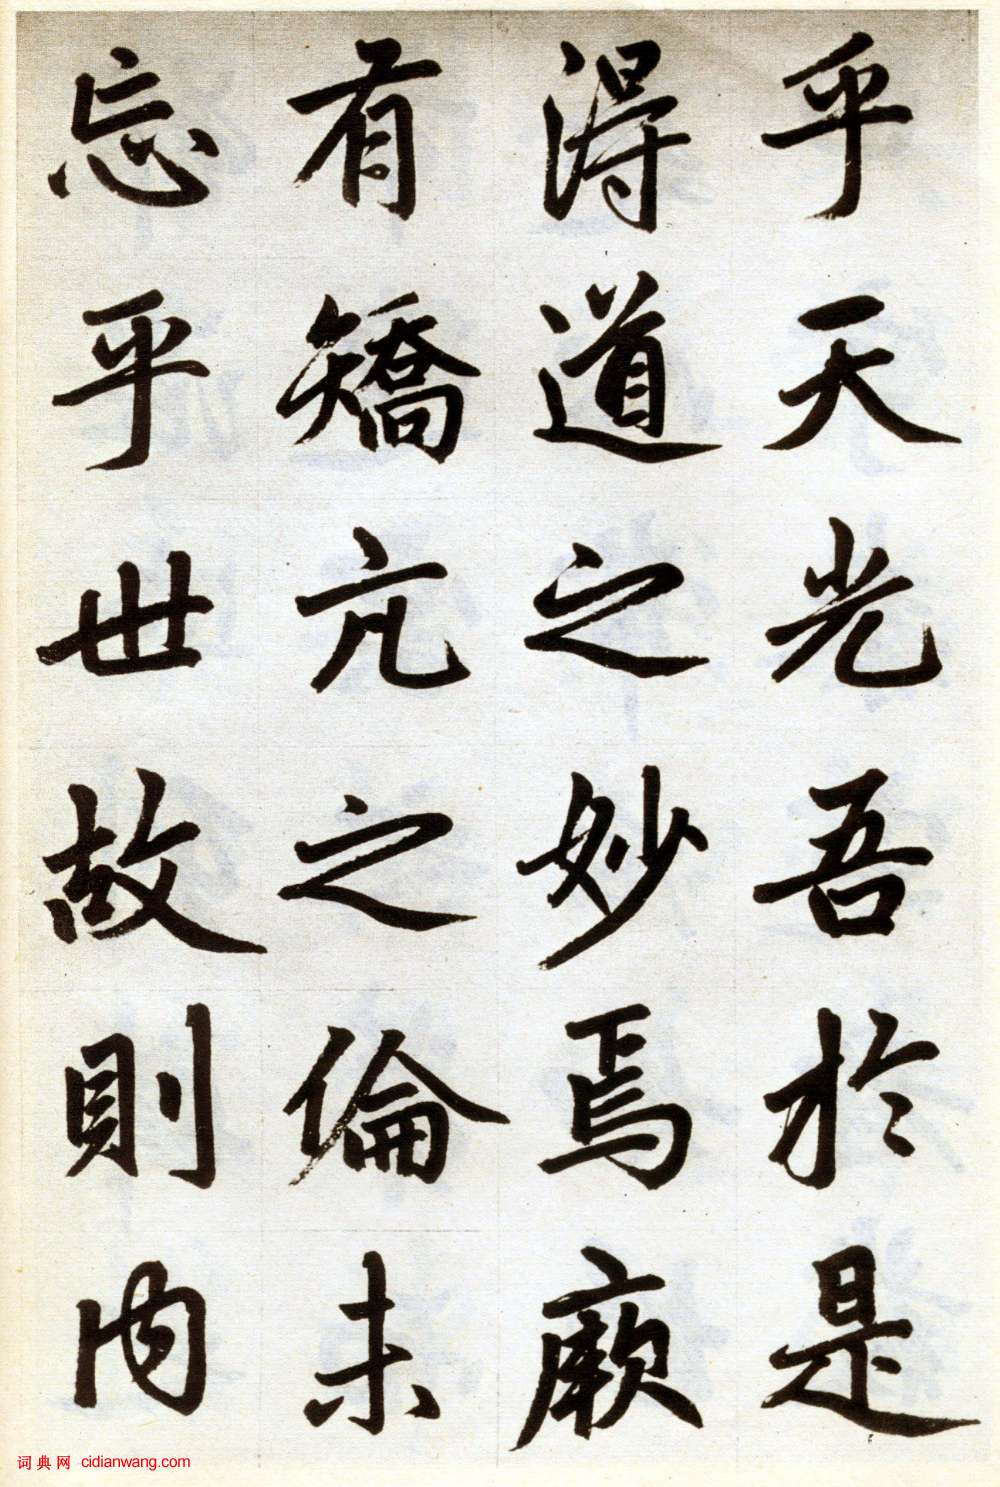 乎天光吾於是
得道之妙焉厥
有矯亢之倫未
忘乎世故則内
词典网 cidianwang.com